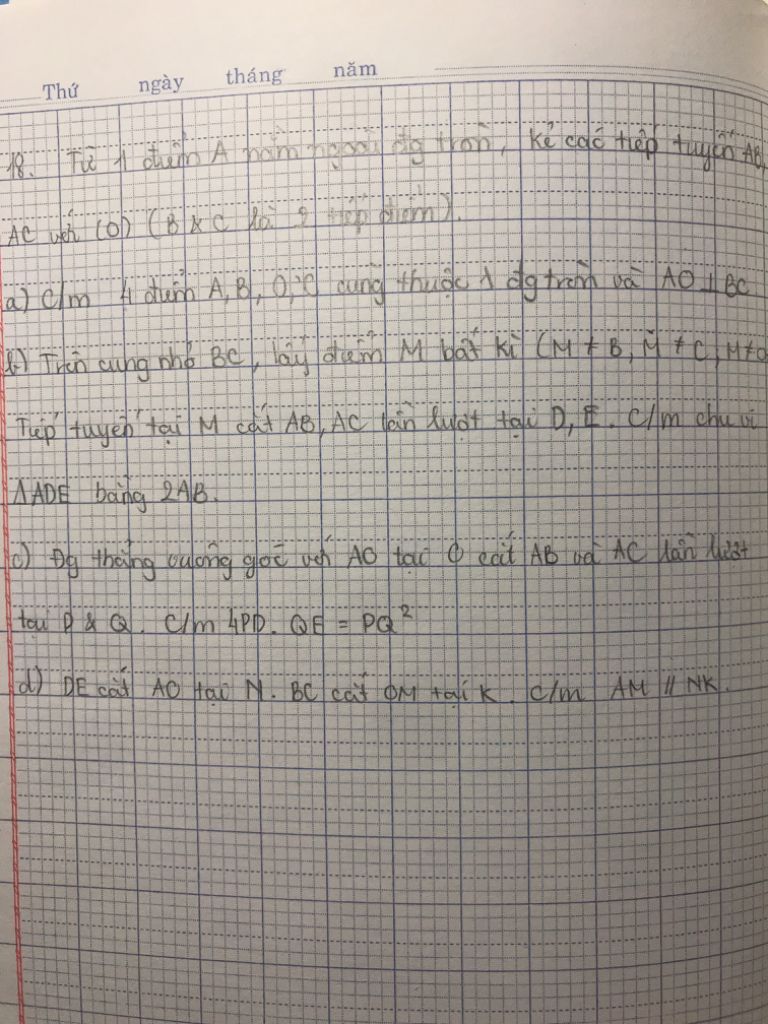 Thứ ngày tháng năm
18. Từ 1 điểm A nằm ngoài đg tròn, kẻ các tiếp tuyến AB,
AC với (O) (B & C là 2 tiếp điểm).
a) C/m 4 điểm A, B, O, C cùng thuộc 1 đg tròn và AO ⊥ BC
b) Trên cung nhỏ BC, lấy điểm M bất kì (M ≠ B, M ≠ C, M ≠
Tiếp tuyến tại M cắt AB, AC lần lượt tại D, E. C/m chu vi
ΔADE bằng 2AB.
c) Đg thẳng vuông góc với AO tại O cắt AB và AC lần lượt
tại P & Q. C/m 4PD. QE = PQ²
d) DE cắt AO tại N. BC cắt OM tại K. C/m AM // NK.